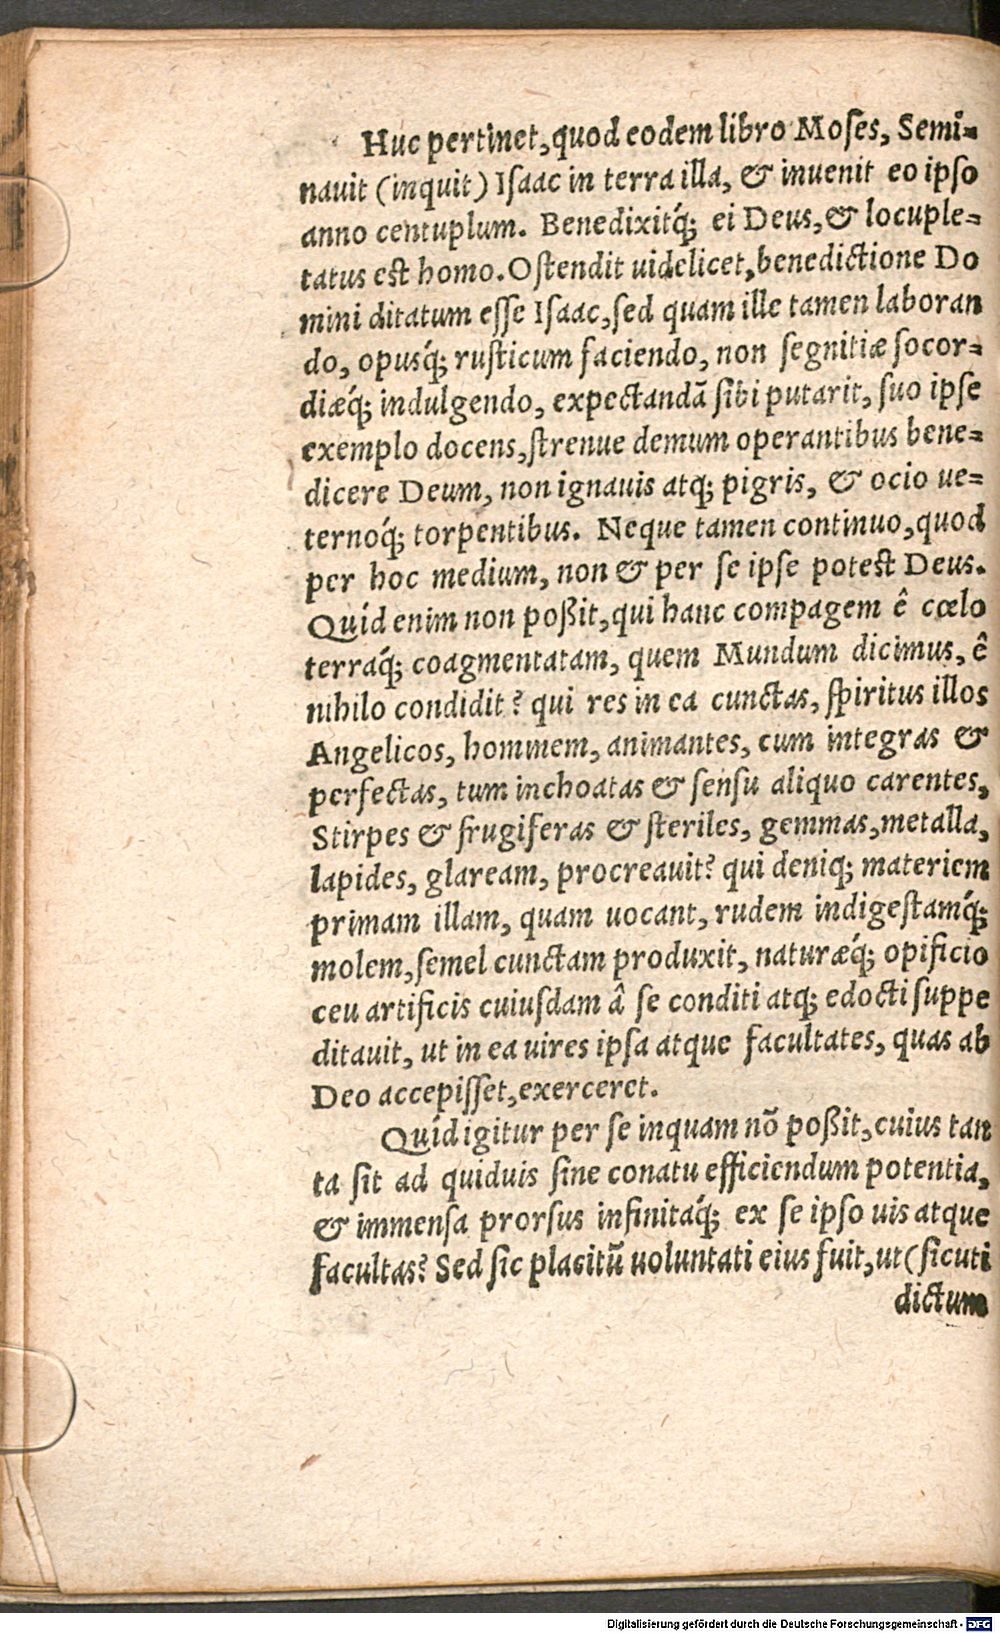 Huc pertinet, quod eodem libro Moses, Semi-
nauit (inquit) Isaac in terra illa, & inuenit eo ipso
anno centuplum. Benedixitq́; ei Deus, & locuple-
tatus est homo. Ostendit uidelicet, benedictione Do
mini ditatum esse Isaac, sed quam ille tamen laboran
do, opusq́; rusticum faciendo, non segnitiæ socor-
diæq́; indulgendo, expectandā sibi putarit, suo ipse
exemplo docens, strenue demum operantibus bene-
dicere Deum, non ignauis atq; pigris, & ocio ue-
ternoq́; torpentibus. Neque tamen continuo, quod
per hoc medium, non & per se ipse potest Deus.
Quid enim non poßit, qui hanc compagem ê cœlo
terraq́; coagmentatam, quem Mundum dicimus, ê
nihilo condidit? qui res in ea cunctas, spiritus illos
Angelicos, hominem, animantes, cum integras &
perfectas, tum inchoatas & sensu aliquo carentes,
Stirpes & frugiferas & steriles, gemmas, metalla,
lapides, glaream, procreauit? qui deniq; materiem
primam illam, quam uocant, rudem indigestamq́;
molem, semel cunctam produxit, naturæq́; opificio
ceu artificis cuiusdam â se conditi atq; edocti suppe
ditauit, ut in ea uires ipsa atque facultates, quas ab
Deo accepisset, exerceret.
Quid igitur per se inquam nō poßit, cuius tan
ta sit ad quiduis sine conatu efficiendum potentia,
& immensa prorsus infinitaq́; ex se ipso uis atque
facultas? Sed sic placitū uoluntati eius fuit, ut (sicuti
dictum
Digitalisierung gefördert durch die Deutsche Forschungsgemeinschaft - DFG